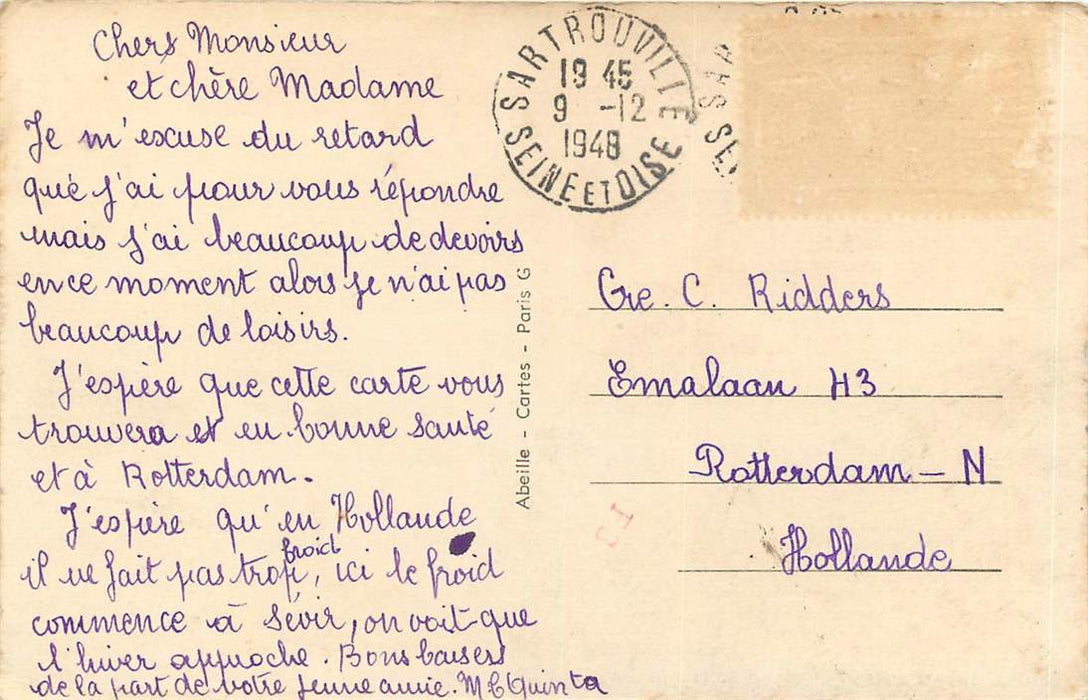 Chers Monsieur
et chère Madame
Je m'excuse du retard
que j'ai pour vous répondre
mais j'ai beaucoup de devoirs
en ce moment alors je n'ai pas
beaucoup de loisirs.
J'espère que cette carte vous
trouvera et en bonne santé
et à Rotterdam.
J'espère qu'en Hollande
il ne fait pas trop froid, ici le froid
commence à sévir, on voit que
l'hiver approche. Bons baisers
de la part de votre jeune amie. M C Quinta
Abeille - Cartes - Paris G
SARTROUVILLE
19 45
9 -12
1948
SEINE ET OISE
SAR
SEI
Gre. C. Ridders
Emalaan 43
Rotterdam - N
Hollande
13